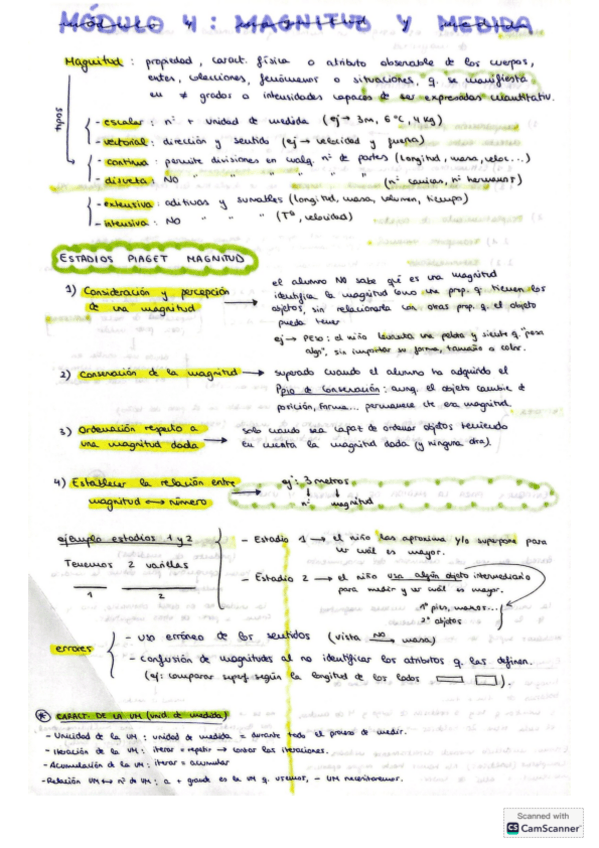 MÓDULO 4: MAGNITUD Y MEDIDA
Magnitud: propiedad, caract. física o atributo observable de los cuerpos,
entes, colecciones, fenómenos o situaciones, q. se manifiesta
en ≠ grados o intensidades capaces de ser expresadas cuantitativ.
- escalar: nº + unidad de medida (ej → 3m, 6ºC, 4 kg)
- vectorial: dirección y sentido (ej → velocidad y fuerza)
- continua: permite divisiones en cualq. nº de partes (longitud, masa, veloc...)
- discreta: NO " " " " " (nº camisas, nº hermanos)
- extensiva: aditivas y sumables (longitud, masa, volumen, tiempo)
- intensiva: NO " " " (Tº, velocidad)
ESTADIOS PIAGET MAGNITUD
1) Consideración y percepción de una magnitud →
el alumno NO sabe qué es una magnitud
identifica la magnitud como una prop. q. tienen los
objetos, sin relacionarla con otras prop. q. el objeto
pueda tener
ej → PESO: el niño levanta una pelota y siente q. "pesa
algo", sin importar su forma, tamaño o color.
2) Conservación de la magnitud → superado cuando el alumno ha adquirido el
Ppio de Conservación: aunq. el objeto cambie de
posición, forma... permanece cte esa magnitud.
3) Ordenación respecto a una magnitud dada →
solo cuando sea capaz de ordenar objetos teniendo
en cuenta la magnitud dada (y ninguna otra).
4) Establecer la relación entre magnitud ↔ número →
ej: 3 metros
↓ ↓
nº magnitud
ejemplo estadios 1 y 2
Tenemos 2 varillas
1 2
- Estadio 1 → el niño las aproxima y/o superpone para
ver cuál es mayor.
- Estadio 2 → el niño usa algún objeto intermediario
para medir y ver cuál es mayor.
1º pies, manos...
2º objetos
errores
- uso erróneo de los sentidos (vista NO → masa)
- confusión de magnitudes al no identificar los atributos q. las definen.
(ej: comparar superf. según la longitud de los lados).
* CARACT. DE LA UM (unid. de medida)
- Unicidad de la UM: unidad de medida = durante todo el proceso de medir.
- Iteración de la UM: iterar = repetir → contar las iteraciones.
- Acumulación de la UM: iterar = acumular
- Relación UM ↔ nº de UM: a + grande es la UM q. usemos, - UM necesitaremos.
Scanned with
CS CamScanner